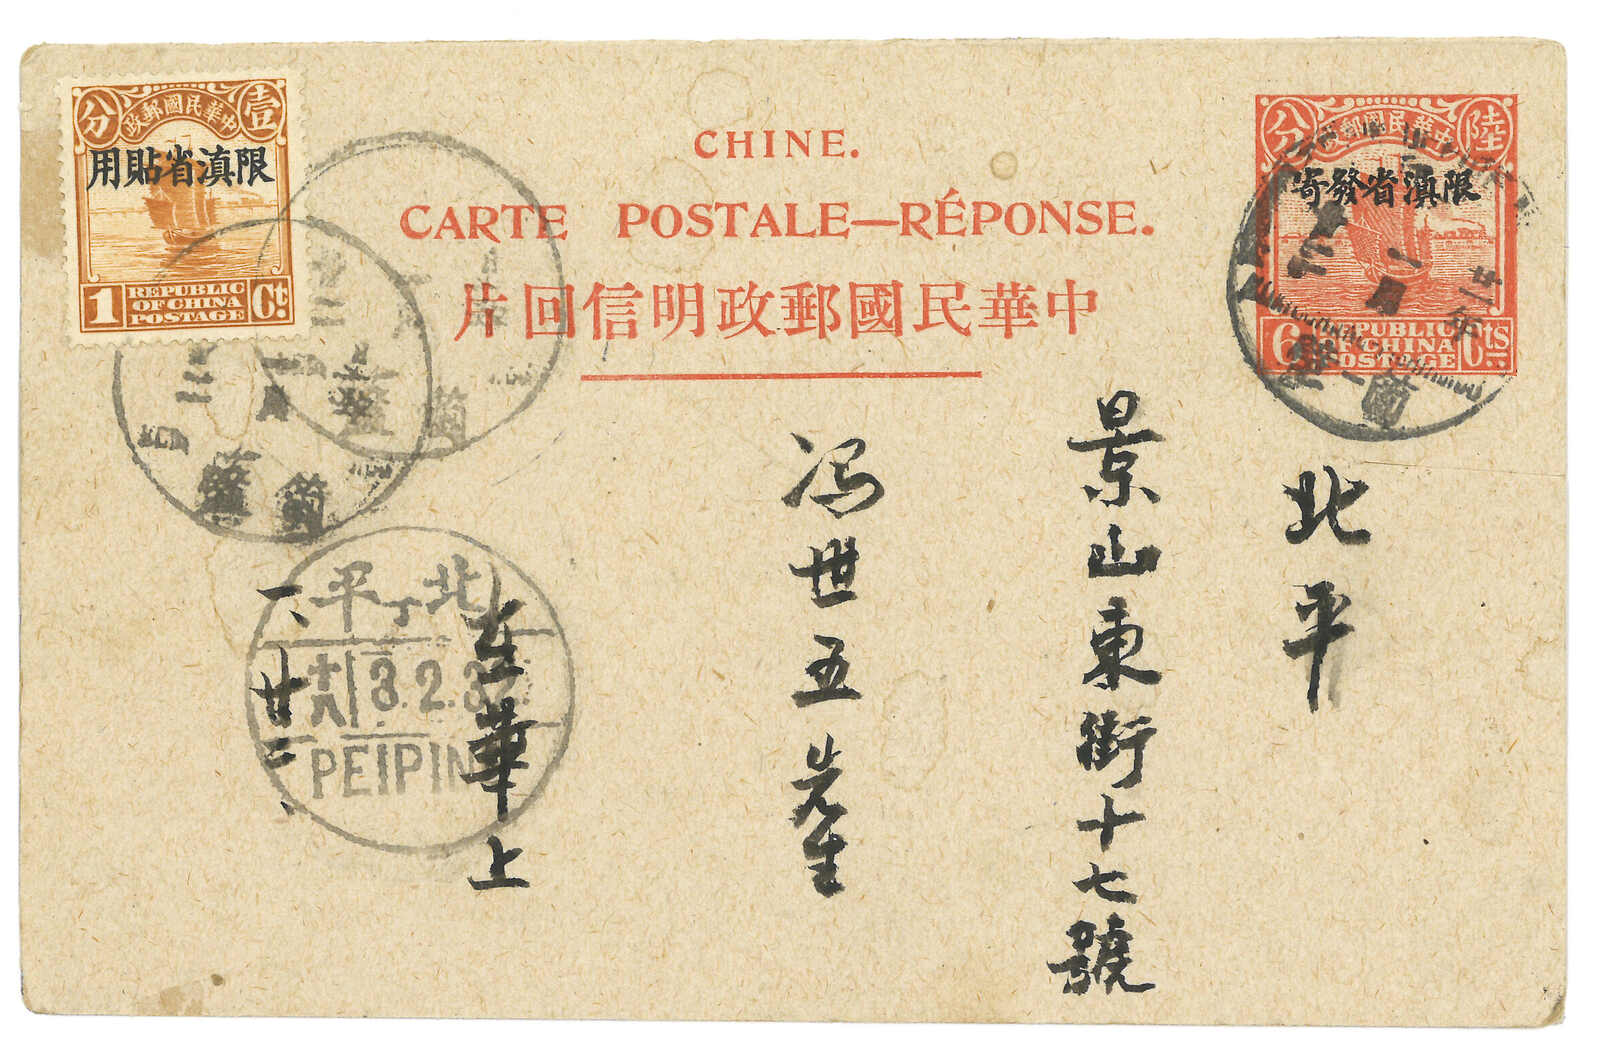 CHINE.
CARTE POSTALE—RÉPONSE.
中華民國郵政明信回片
中華民國郵政
壹分
限滇省貼用
1 REPUBLIC OF CHINA POSTAGE Ct.
中華民國郵政
陸分
限滇省發寄
6 REPUBLIC OF CHINA POSTAGE Cts
北平
景山東街十七號
冯世五先生
華上
一、廿二、
北平
丁
十八
3.2.3
PEIPIN
箇舊